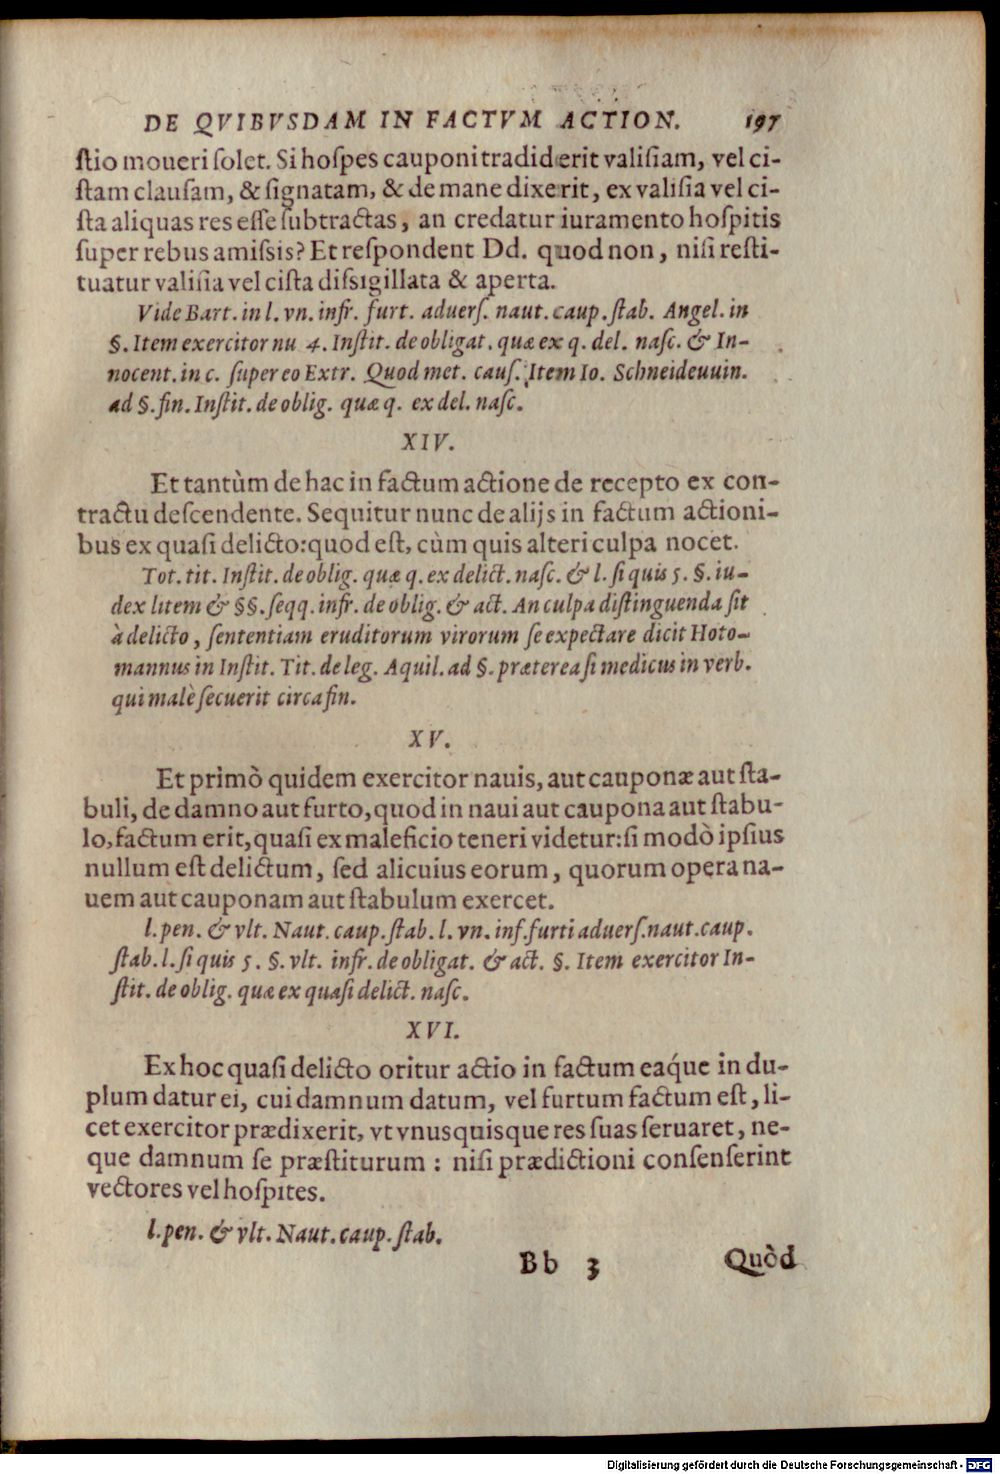 DE QVIBVSDAM IN FACTVM ACTION. 197
ſtio moueri ſolet. Si hoſpes cauponi tradiderit valiſiam, vel ci-
ſtam clauſam, & ſignatam, & de mane dixerit, ex valiſia vel ci-
ſta aliquas res eſſe ſubtractas, an credatur iuramento hoſpitis
ſuper rebus amiſsis? Et reſpondent Dd. quod non, niſi reſti-
tuatur valiſia vel ciſta diſsigillata & aperta.
Vide Bart. in l. vn. infr. furt. aduerſ. naut. caup. ſtab. Angel. in
§. Item exercitor nu 4. Inſtit. de obligat. quæ ex q. del. naſc. & In-
nocent. in c. ſuper eo Extr. Quod met. cauſ. Item Io. Schneideuuin.
ad §. fin. Inſtit. de oblig. quæ q. ex del. naſc.
XIV.
Et tantùm de hac in factum actione de recepto ex con-
tractu deſcendente. Sequitur nunc de alijs in factum actioni-
bus ex quaſi delicto: quod eſt, cùm quis alteri culpa nocet.
Tot. tit. Inſtit. de oblig. quæ q. ex delict. naſc. & l. ſi quis 5. §. iu-
dex litem & §§. ſeqq. infr. de oblig. & act. An culpa diſtinguenda ſit
à delicto, ſententiam eruditorum virorum ſe expectare dicit Hoto-
mannus in Inſtit. Tit. de leg. Aquil. ad §. præterea ſi medicus in verb.
qui malè ſecuerit circa fin.
XV.
Et primò quidem exercitor nauis, aut cauponæ aut ſta-
buli, de damno aut furto, quod in naui aut caupona aut ſtabu-
lo, factum erit, quaſi ex maleficio teneri videtur: ſi modò ipſius
nullum eſt delictum, ſed alicuius eorum, quorum opera na-
uem aut cauponam aut ſtabulum exercet.
l. pen. & vlt. Naut. caup. ſtab. l. vn. inf. furti aduerſ. naut. caup.
ſtab. l. ſi quis 5. §. vlt. infr. de obligat. & act. §. Item exercitor In-
ſtit. de oblig. quæ ex quaſi delict. naſc.
XVI.
Ex hoc quaſi delicto oritur actio in factum eáque in du-
plum datur ei, cui damnum datum, vel furtum factum eſt, li-
cet exercitor prædixerit, vt vnusquisque res ſuas ſeruaret, ne-
que damnum ſe præſtiturum: niſi prædictioni conſenſerint
vectores vel hoſpites.
l. pen. & vlt. Naut. caup. ſtab.
Bb 3 Quòd
Digitalisierung gefördert durch die Deutsche Forschungsgemeinschaft - DFG